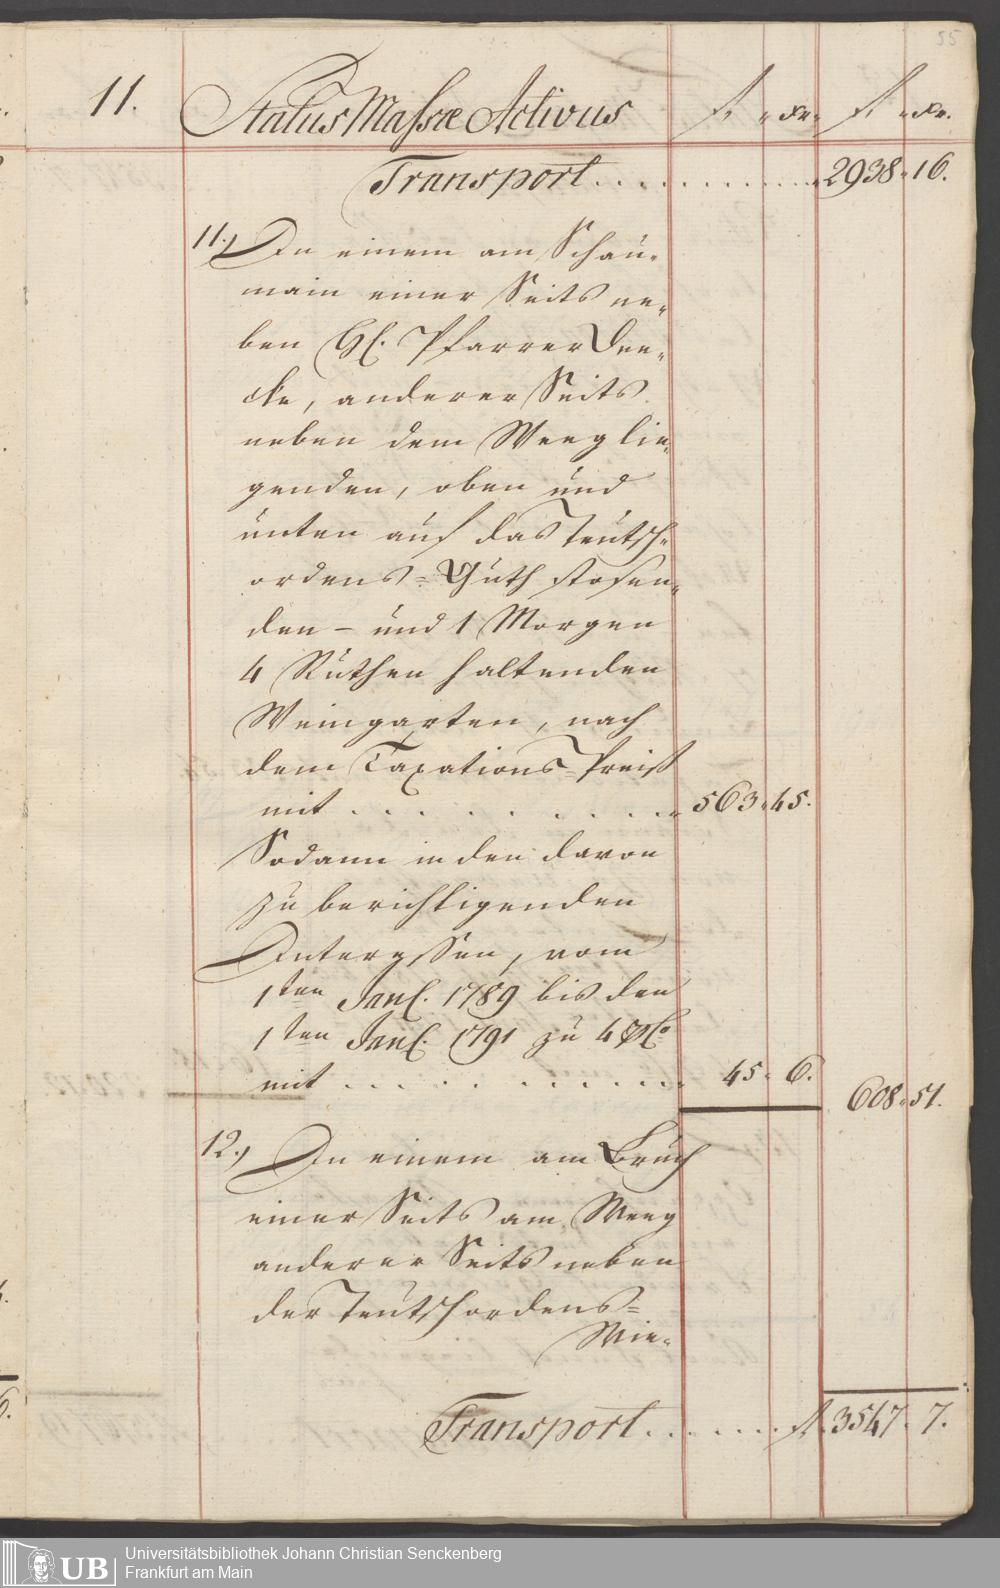 55
11. Status Massæ Activus f. xr. f. xr.
Transport . . . . . . . . . . 2938. 16.
11.) In einem am Schau-
main einer Seits ne-
ben H. Pfarrer Den-
cke, anderer Seits
neben dem Weeg lie-
genden, oben und
unten auf das Teutsch-
ordens-Guth stosen-
den – und 1 Morgen
4 Ruthen haltenden
Weingarten, nach
dem Taxations-Preiß
mit . . . . . . . . . . 563. 45.
Sodann in den davon
zu berichtigenden
Interessen, vom
1ten Jan. 1789 bis den
1ten Jan. 1791 zu 4 pCo
mit . . . . . . . . . . 45. 6.
608. 51.
12.) In einem am Bruch
einer Seits am Weeg
anderer Seits neben
der Teutschordens-
Wie-
Transport . . . . . . . f. 3547. 7.
UB Universitätsbibliothek Johann Christian Senckenberg
Frankfurt am Main